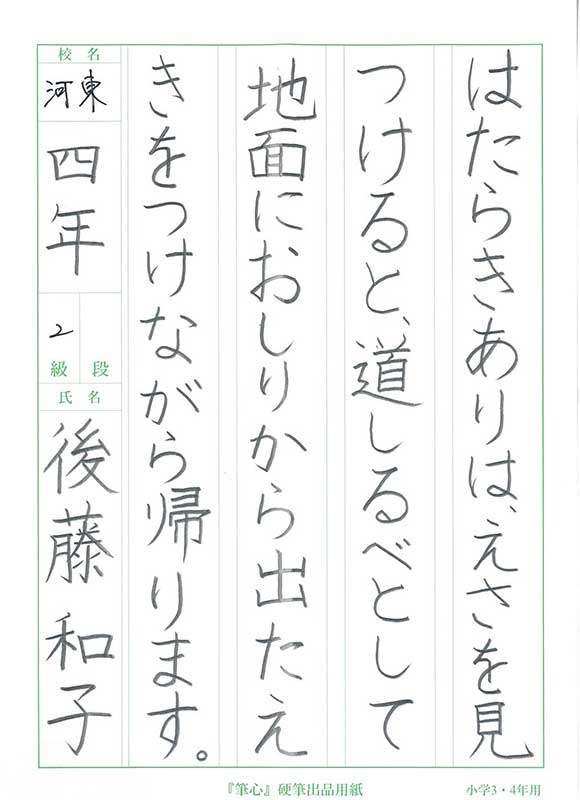 はたらきありは、えさを見
つけると、道しるべとして
地面におしりから出たえ
きをつけながら帰ります。
校名
河東
四年
2
級 段
氏名
後藤和子
『筆心』硬筆出品用紙
小学3・4年用